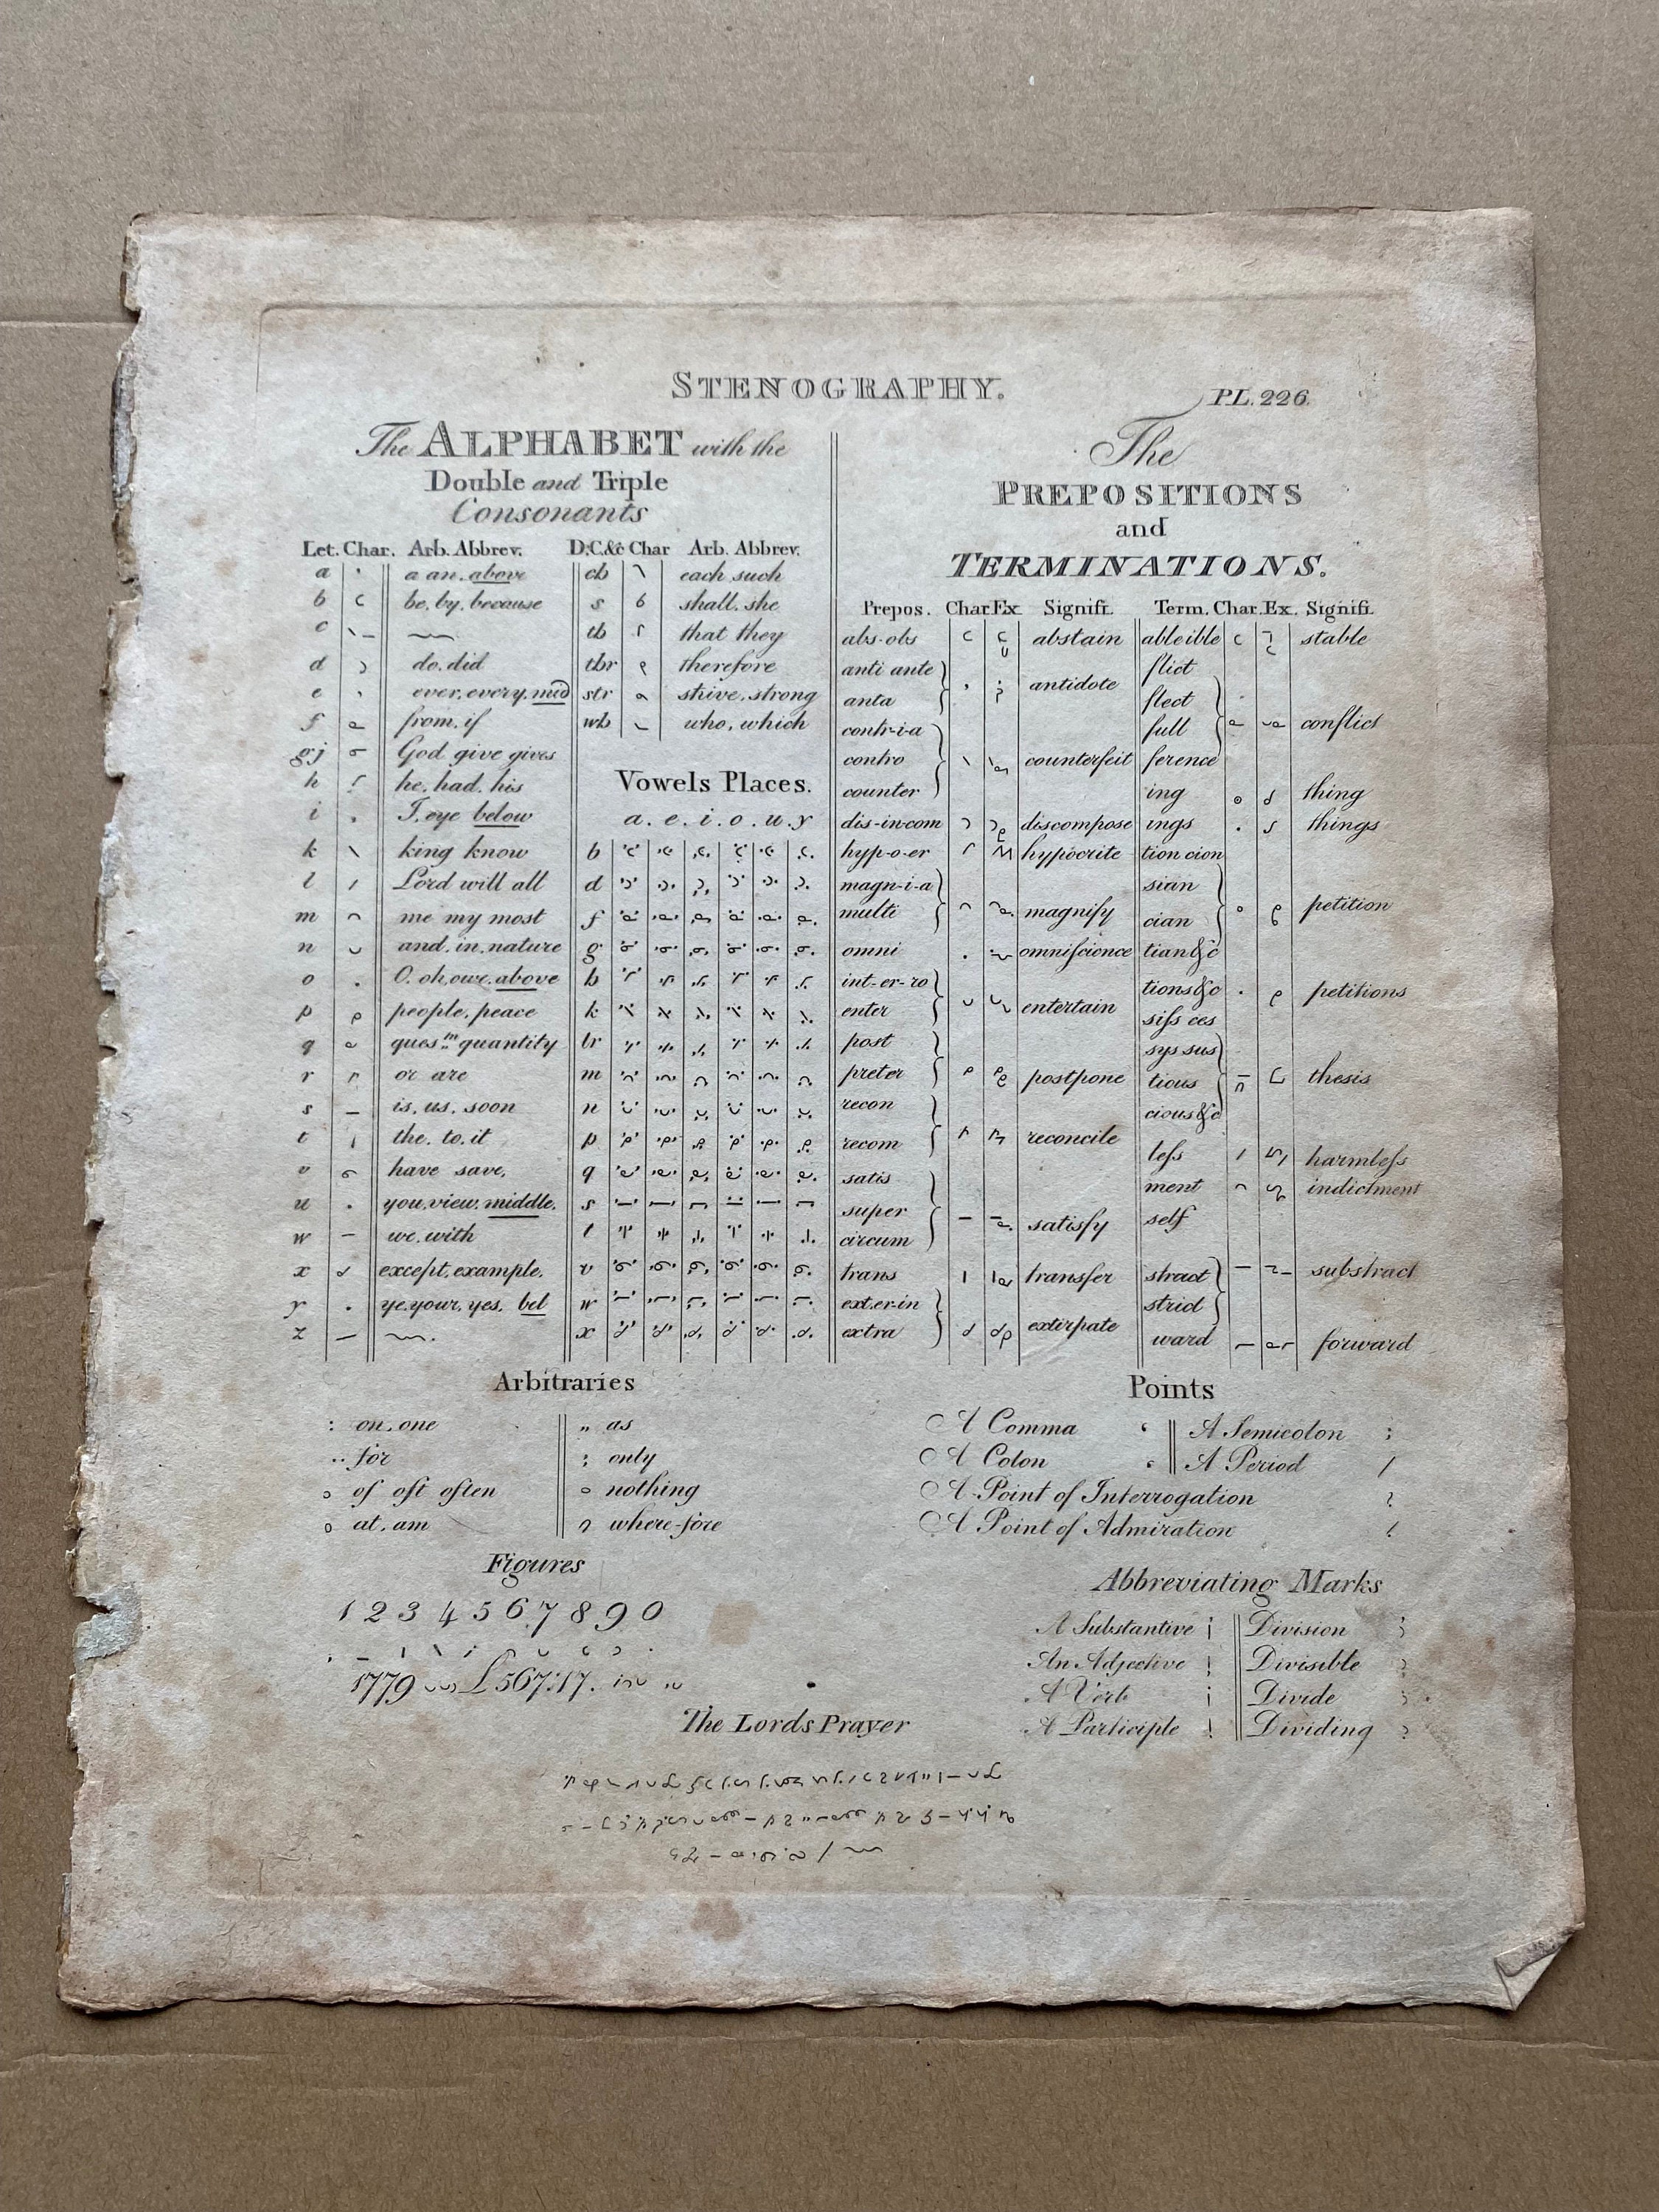 STENOGRAPHY.
PL. 226.
The ALPHABET with the
Double and Triple
Consonants
Let. Char. Arb. Abbrev. D.C.&c Char Arb. Abbrev.
a a an. above ch each such
b be. by. because s shall. she
c th that they
d do. did thr therefore
e ever. every. mid str strive. strong
f from. if wh who. which
gj God give gives
h he. had. his
i I. eye below
k king know
l Lord will all
m me my most
n and. in. nature
o O. oh. owe. above
p people. peace
q ques.n quantity
r or are
s is. us. soon
t the. to. it
v have save.
u you. view. middle.
w we. with
x except. example.
y ye. your. yes. bel
z
Vowels Places.
a. e. i. o. u. y
b
d
f
g
h
k
lr
m
n
p
q
s
t
v
w
x
The
PREPOSITIONS
and
TERMINATIONS.
Prepos. Char Ex Signifi. Term. Char. Ex. Signifi.
abs-obs abstain
anti ante
anta antidote
contr-i-a
contro counterfeit
counter
dis-in-com discompose
hyp-o-er hypocrite
magn-i-a
multi magnify
omni omniscience
int-er-ro
enter entertain
post
preter postpone
recon
recom reconcile
satis
super satisfy
circum
trans transfer
ext.er-in
extra extirpate
able ible stable
flict
flect
full conflict
ference
ing thing
ings things
tion cion
sian
cian petition
tian &c
tions &c petitions
siss ces
sys sus
tious thesis
cious &c
less harmless
ment indictment
self
stract substract
strid
ward forward
Arbitraries
: on. one „ as
.. for ; only
of oft often nothing
at. am where-fore
Points
A Comma A Semicolon
A Colon A Period
A Point of Interrogation
A Point of Admiration
Figures
1 2 3 4 5 6 7 8 9 0
1779 £567:17.
Abbreviating Marks
A Substantive Division
An Adjective Divisible
A Verb Divide
A Participle Dividing
The Lords Prayer